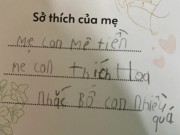 Sở thích của mẹ
mẹ con mê tiền
mẹ con thích Hoa
nhắc Bố con nhiều
quá